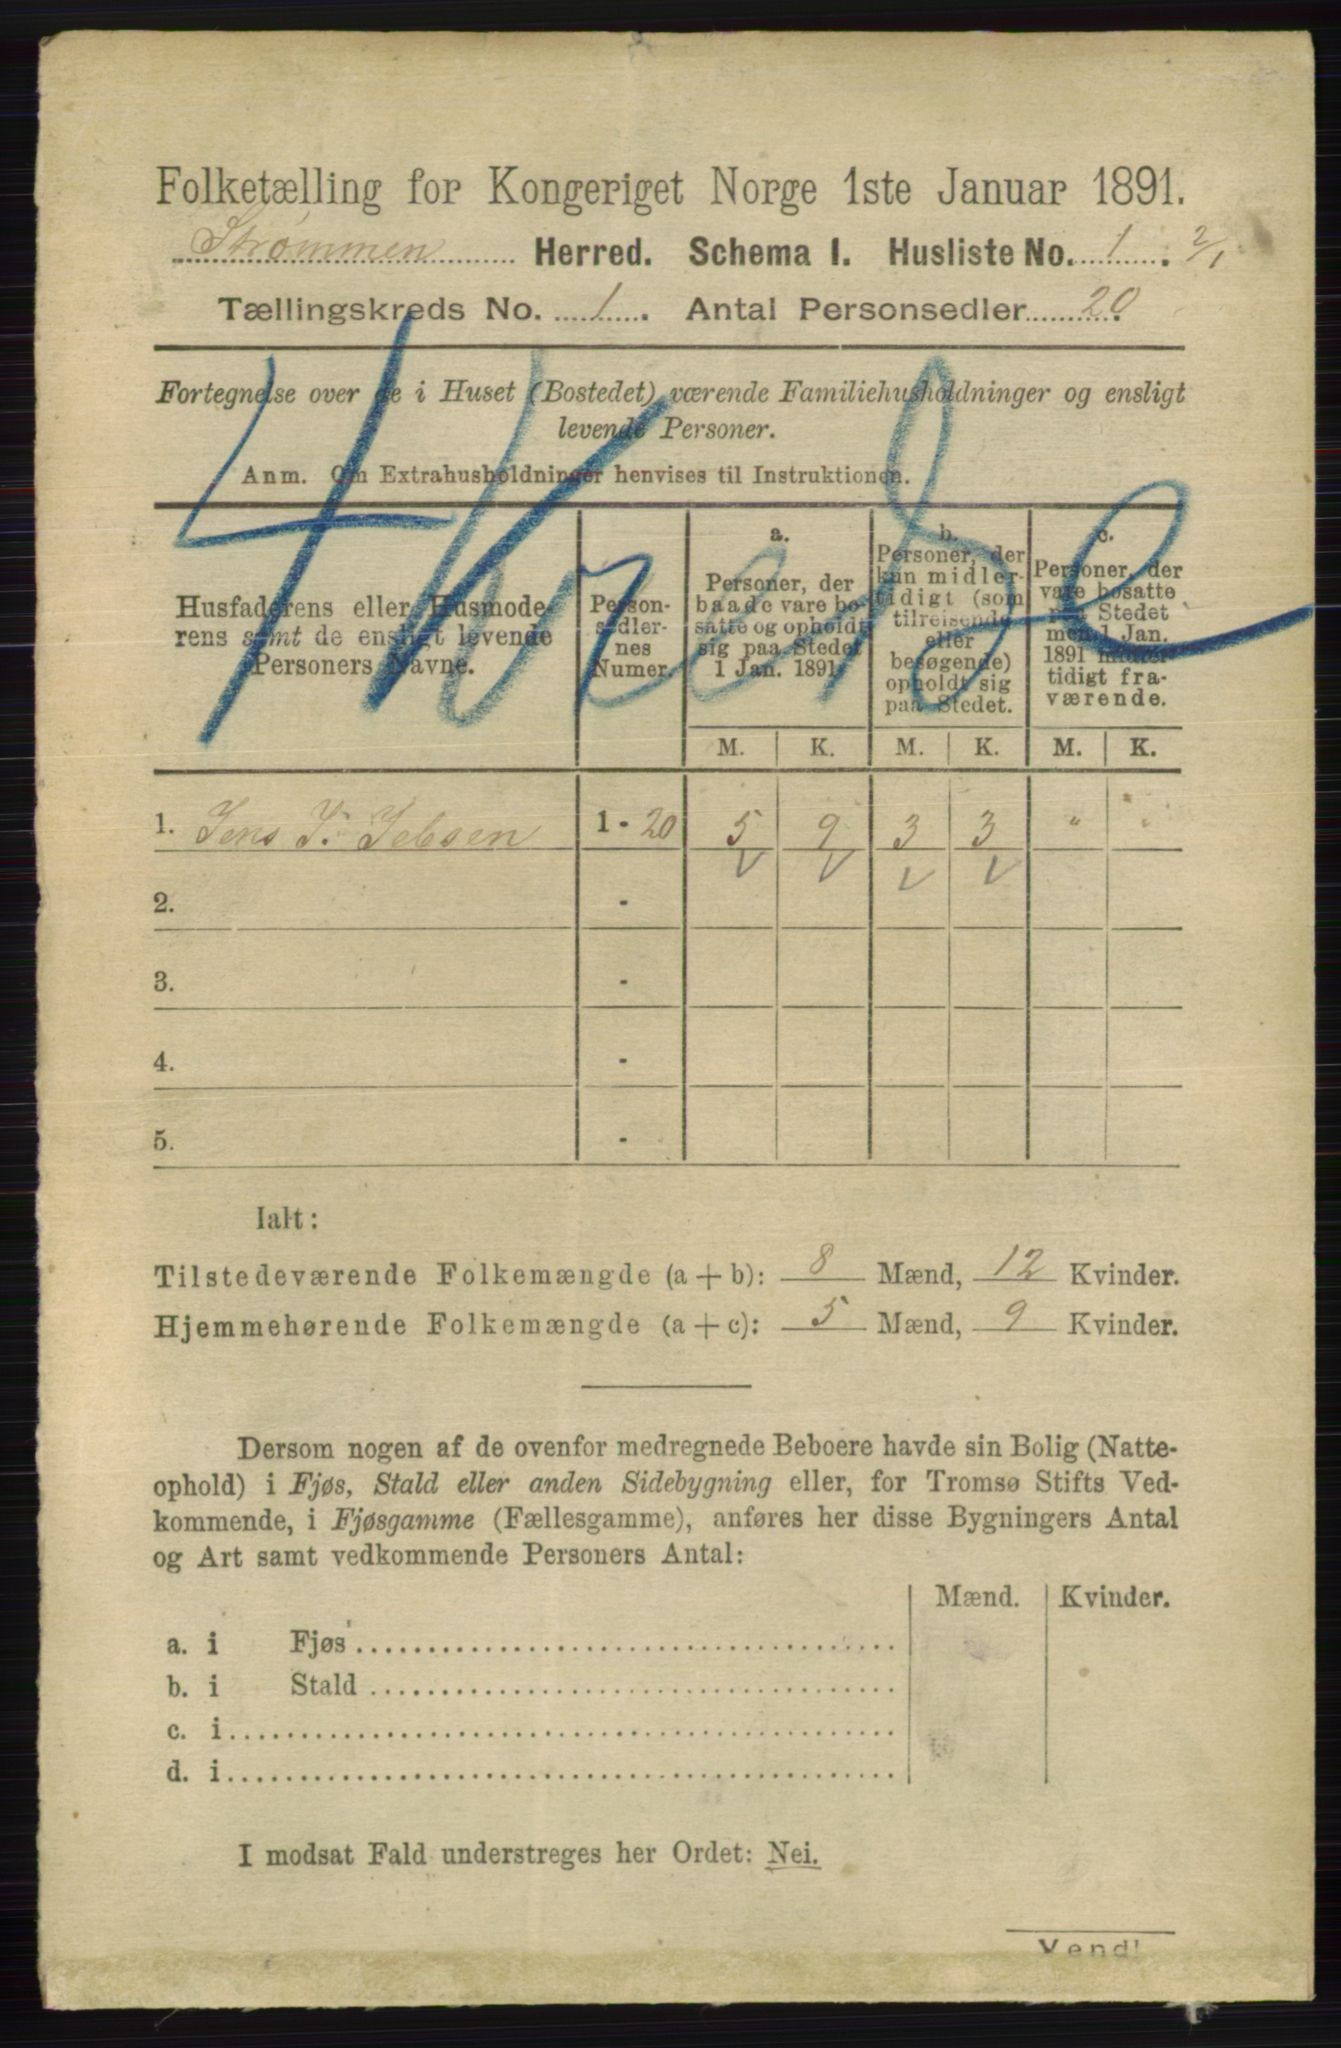 Folketælling for Kongeriget Norge 1ste Januar 1891.
Strømmen Herred. Schema I. Husliste No. 1. 2/1
Tællingskreds No. 1. Antal Personsedler 20.
Fortegnelse over de i Huset (Bostedet) værende Familiehusholdninger og ensligt
levende Personer.
Anm. Om Extrahusholdninger henvises til Instruktionen.
Husfaderens eller Husmode-
rens samt de ensligt levende
Personers Navne.
Person-
sedler-
nes
Numer.
a.
Personer, der
baade vare bo-
satte og opholdt
sig paa Stedet
1 Jan. 1891.
b.
Personer, der
kun midler-
tidigt (som
tilreisende
eller
besøgende)
opholdt sig
paa Stedet.
c.
Personer, der
vare bosatte
paa Stedet
men 1 Jan.
1891 midler-
tidigt fra-
værende.
M. K. M. K. M. K.
1. Jens J. Jebsen 1 - 20 5 9 3 3 " "
2. -
3. -
4. -
5. -
Ialt:
Tilstedeværende Folkemængde (a + b): 8 Mænd, 12 Kvinder.
Hjemmehørende Folkemængde (a + c): 5 Mænd, 9 Kvinder.
Dersom nogen af de ovenfor medregnede Beboere havde sin Bolig (Natte-
ophold) i Fjøs, Stald eller anden Sidebygning eller, for Tromsø Stifts Ved-
kommende, i Fjøsgamme (Fællesgamme), anføres her disse Bygningers Antal
og Art samt vedkommende Personers Antal:
Mænd. Kvinder.
a. i Fjøs
b. i Stald
c. i
d. i
I modsat Fald understreges her Ordet: Nei.
Vend!